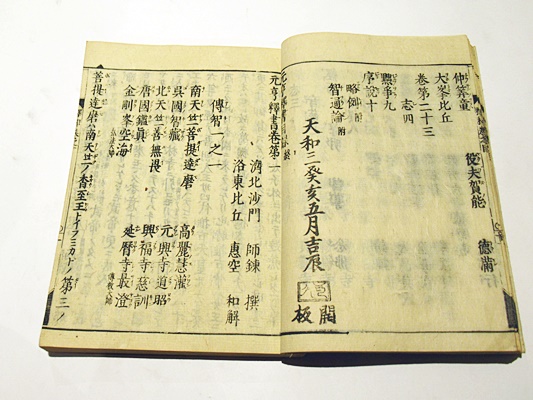 仲算童 役夫賀能
大峯比丘
卷第二十三
志四
黜爭九
序說十
略例 附
智通論 附
天和三癸亥五月吉辰
開板
元亨釋書 卷第一
濟北沙門 師錬 撰
洛東比丘 惠空 和解
傳智一之一
南天竺菩提達磨 高麗慧灌
吳國智藏 元興寺道昭
北天竺善無畏 興福寺慈訓
唐國鑑真 延曆寺最澄 傳教大師
金剛峯空海
菩提達磨ハ南天竺ノ香至王トイフミカドノ第三ノ